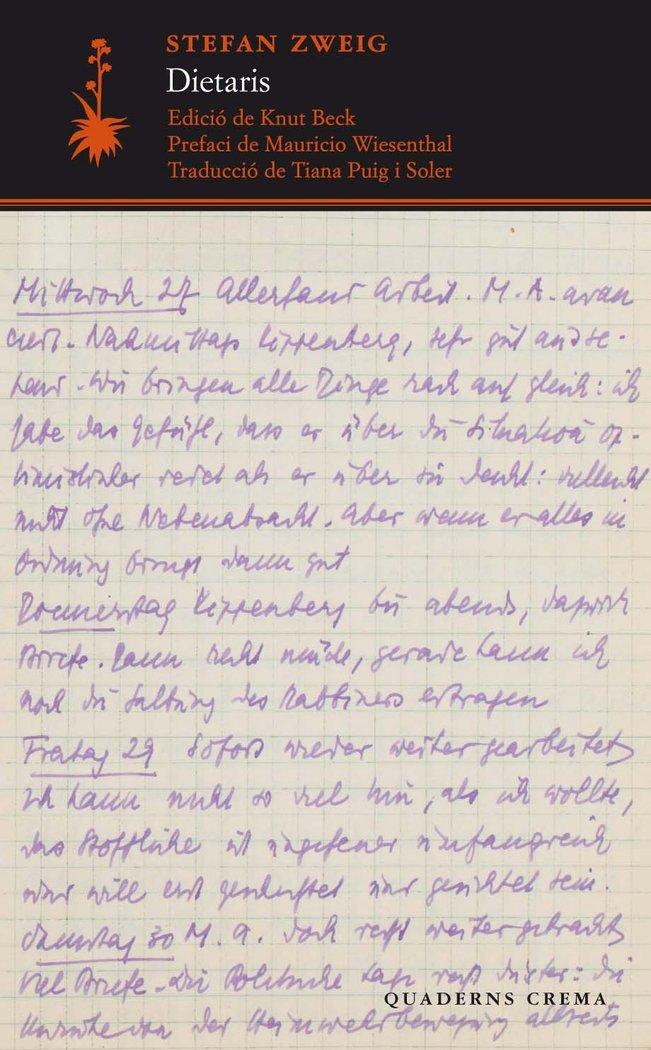 STEFAN ZWEIG
Dietaris
Edició de Knut Beck
Prefaci de Mauricio Wiesenthal
Traducció de Tiana Puig i Soler
Mittwoch 27 Allerhand Arbeit. M. A. avan
ciert. Nachmittags Kippenberg, sehr gut ausse-
hend. Wir bringen alle Dinge rasch auf gleich: ich
habe das Gefühl, dass er über die Situation op-
timistischer redet als er über sie denkt: vielleicht
nicht ohne Nebenabsicht. Aber wenn er alles in
Ordnung bringt dann gut
Donnerstag Kippenberg bis abends, dazwisch
Briefe. Dann recht müde, gerade kann ich
noch die Salbung des Rabbiners ertragen
Freitag 29 Sofort wieder weiter gearbeitet
ich kann nicht so viel tun, als ich wollte,
das Stoffliche ist ungeheuer umfangreich
und will erst gesichtet sein.
Samstag 30 M. A. doch recht weitergebracht
Viel Briefe. Die Politische Lage recht düster: die
der Heimwehrbewegung
QUADERNS CREMA